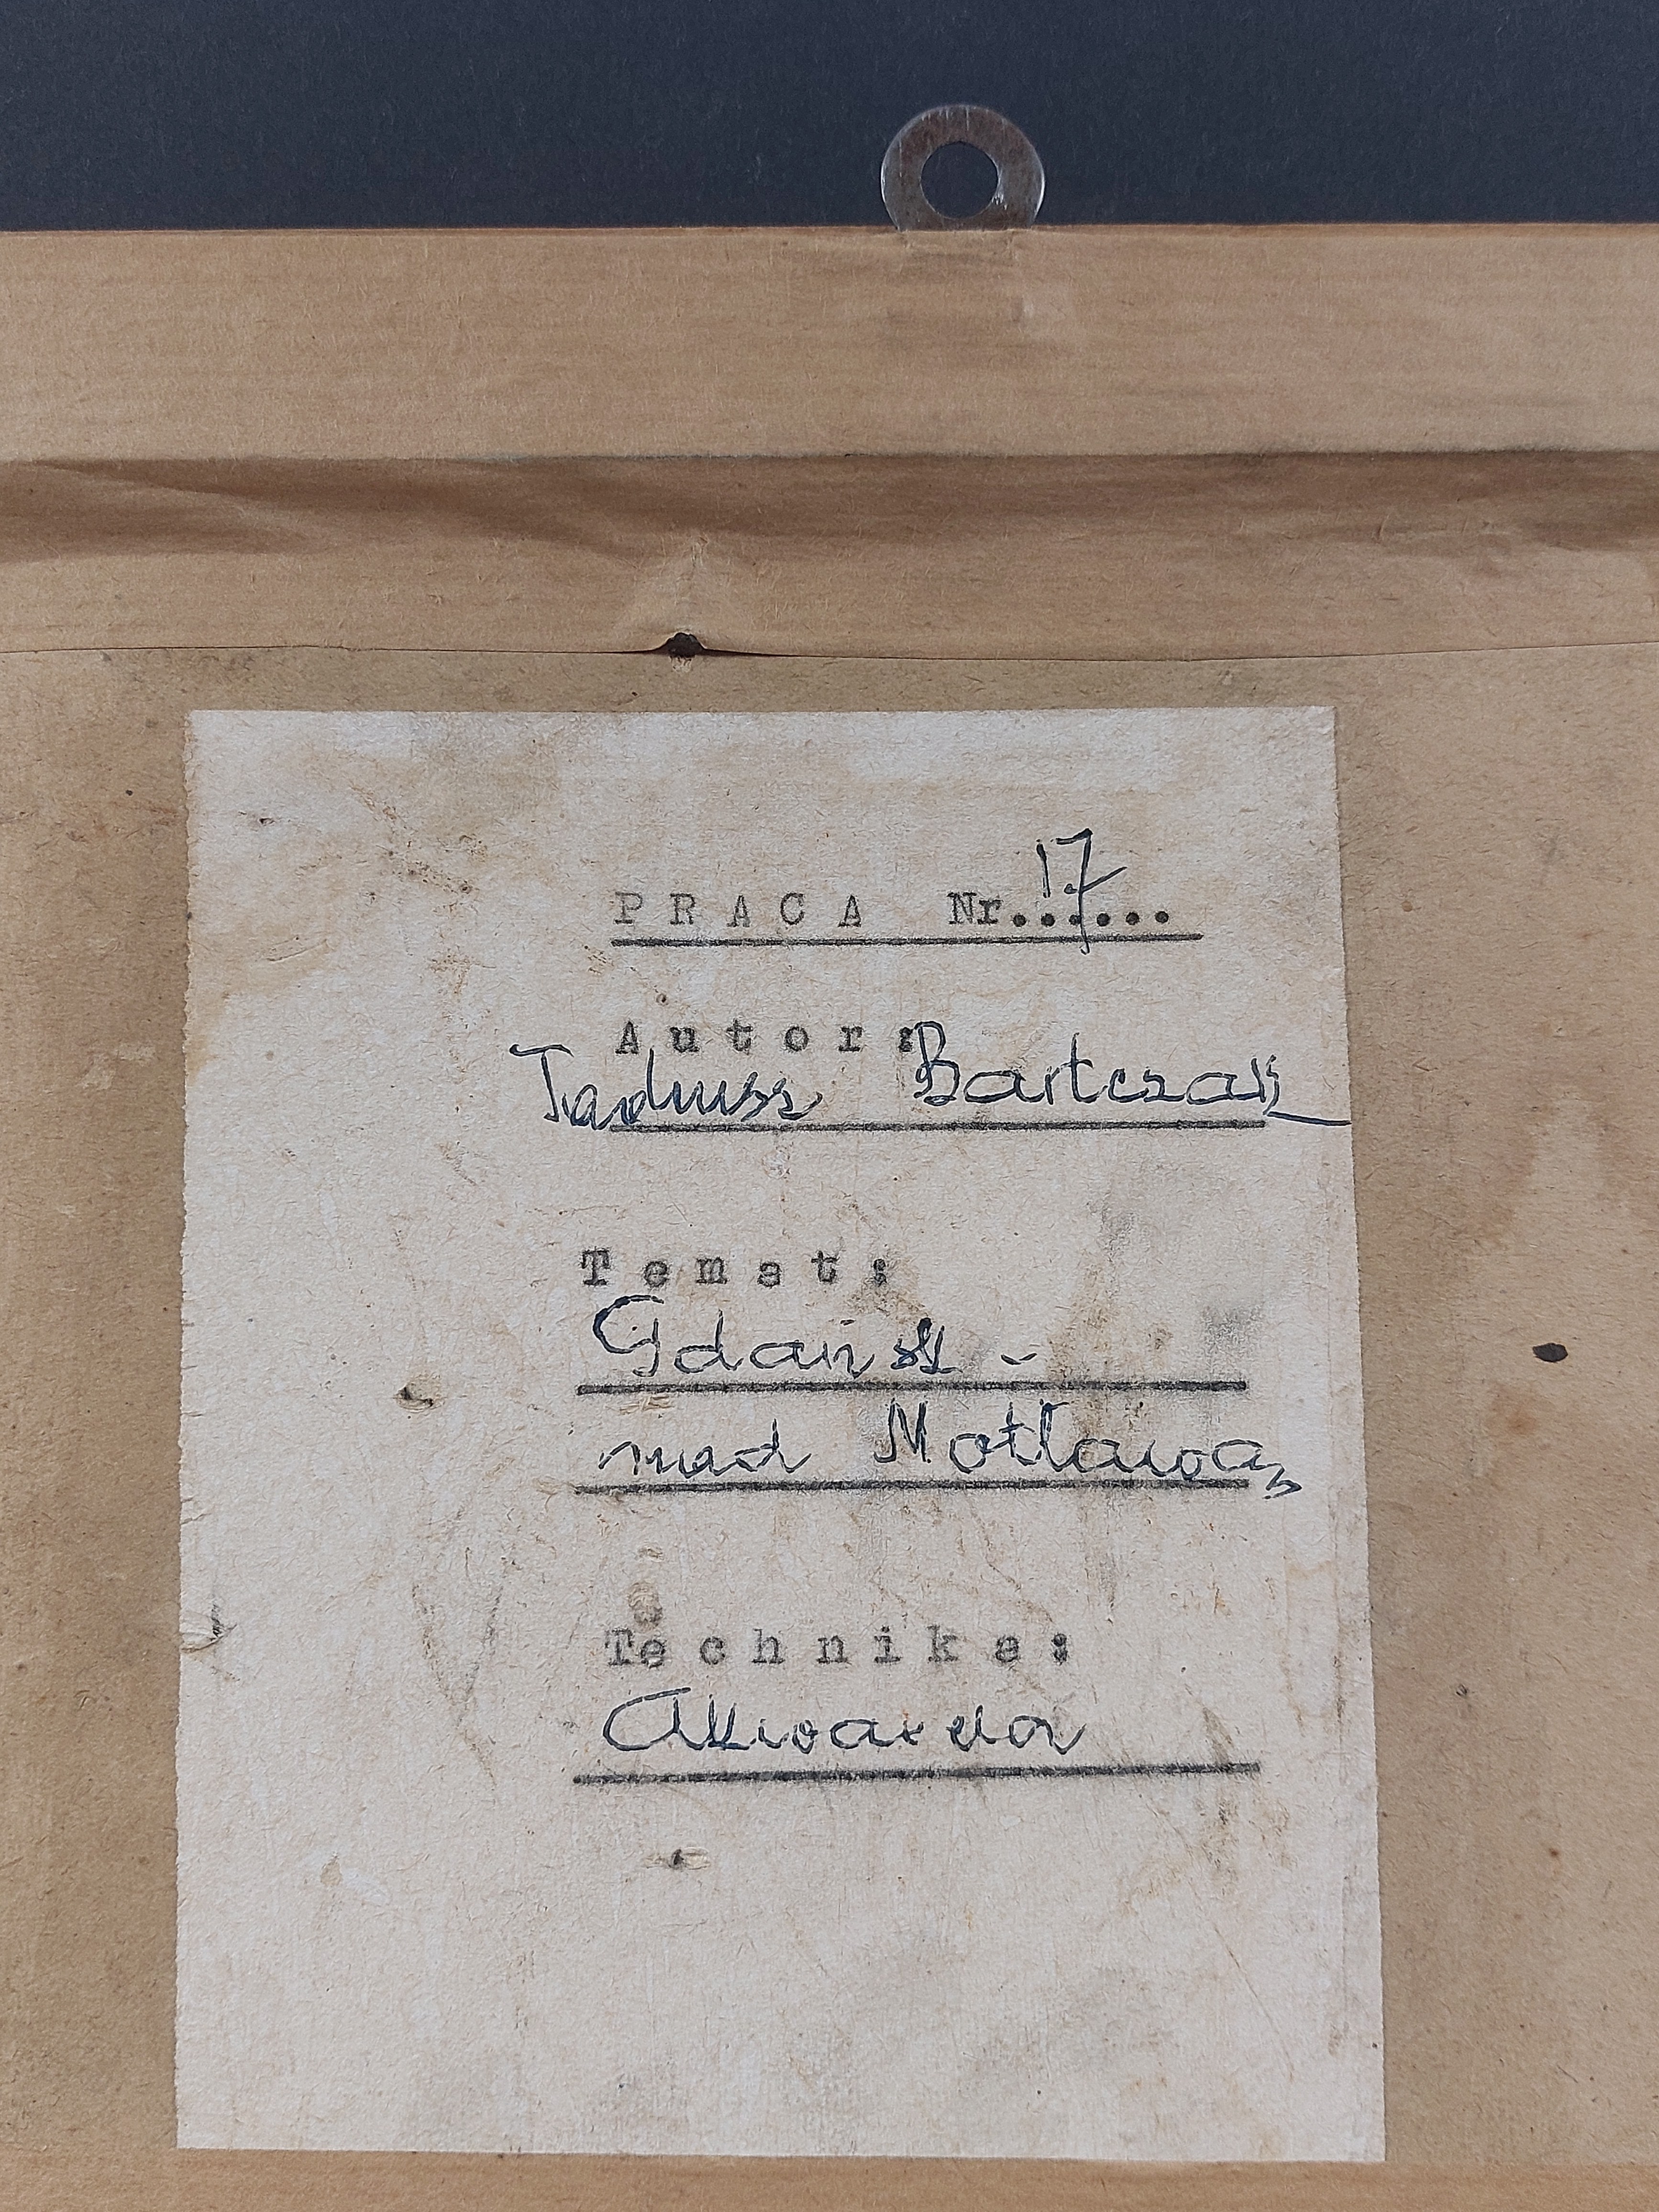 PRACA Nr...17...
Autor:
Tadeusz Bartczak
Temat:
Gdańsk -
nad Motławą
Technika:
Akwarela